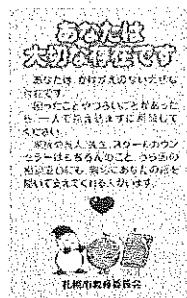 あなたは
大切な存在です
あなたは、かけがえのない大切な
存在です。
困ったことやつらいことがあった
ら、一人で抱え込まずに相談して
ください。
家族や友人、先生、スクールカウン
セラーはもちろんのこと、うら面の
相談窓口にも、親身にあなたの話を
聞いて支えてくれる人がいます。
札幌市教育委員会